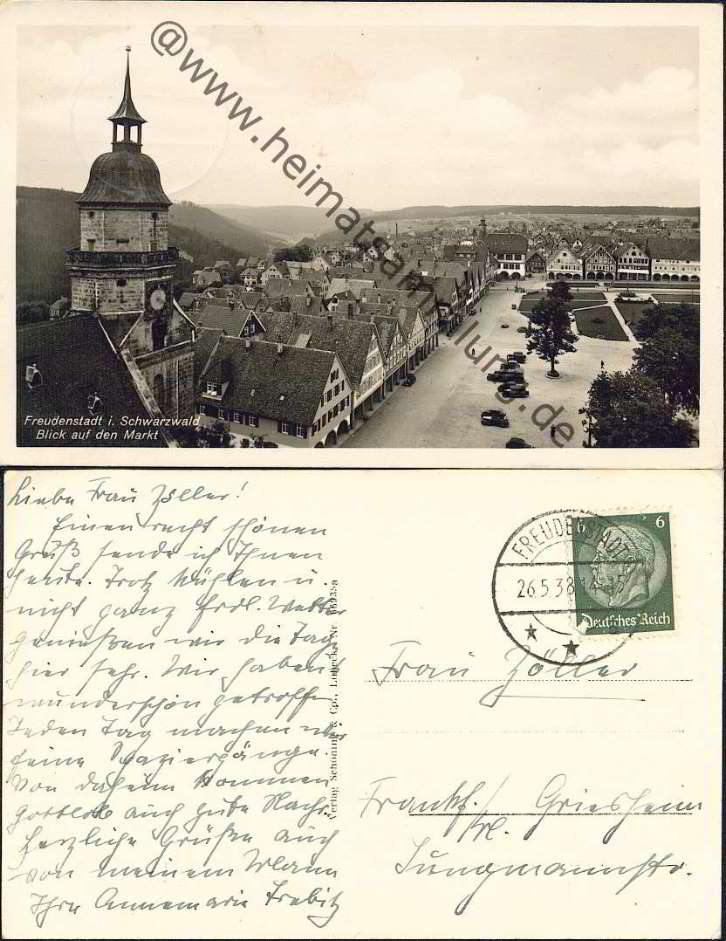 @www.heimatsammlung.de
Freudenstadt i. Schwarzwald
Blick auf den Markt
Liebe Frau Zöller!
Einen recht schönen
Gruß sende ich Ihnen
heute. Trotz kühlen u.
nicht ganz frdl. Wetter
genießen wir die Tage
hier sehr. Wir haben es
wunderschön getroffen.
Jeden Tag machen wir
feine Spaziergänge.
Von daheim kommen
gottlob auch gute Nachr.
Herzliche Grüße auch
von meinem Mann
Ihre Annemarie
Verlag Schöning & Co., Lübeck
FREUDENSTADT
26.5.38
6 6
Deutsches Reich
Frau Zöller
Frankf./ Griesheim
Jungmannstr.